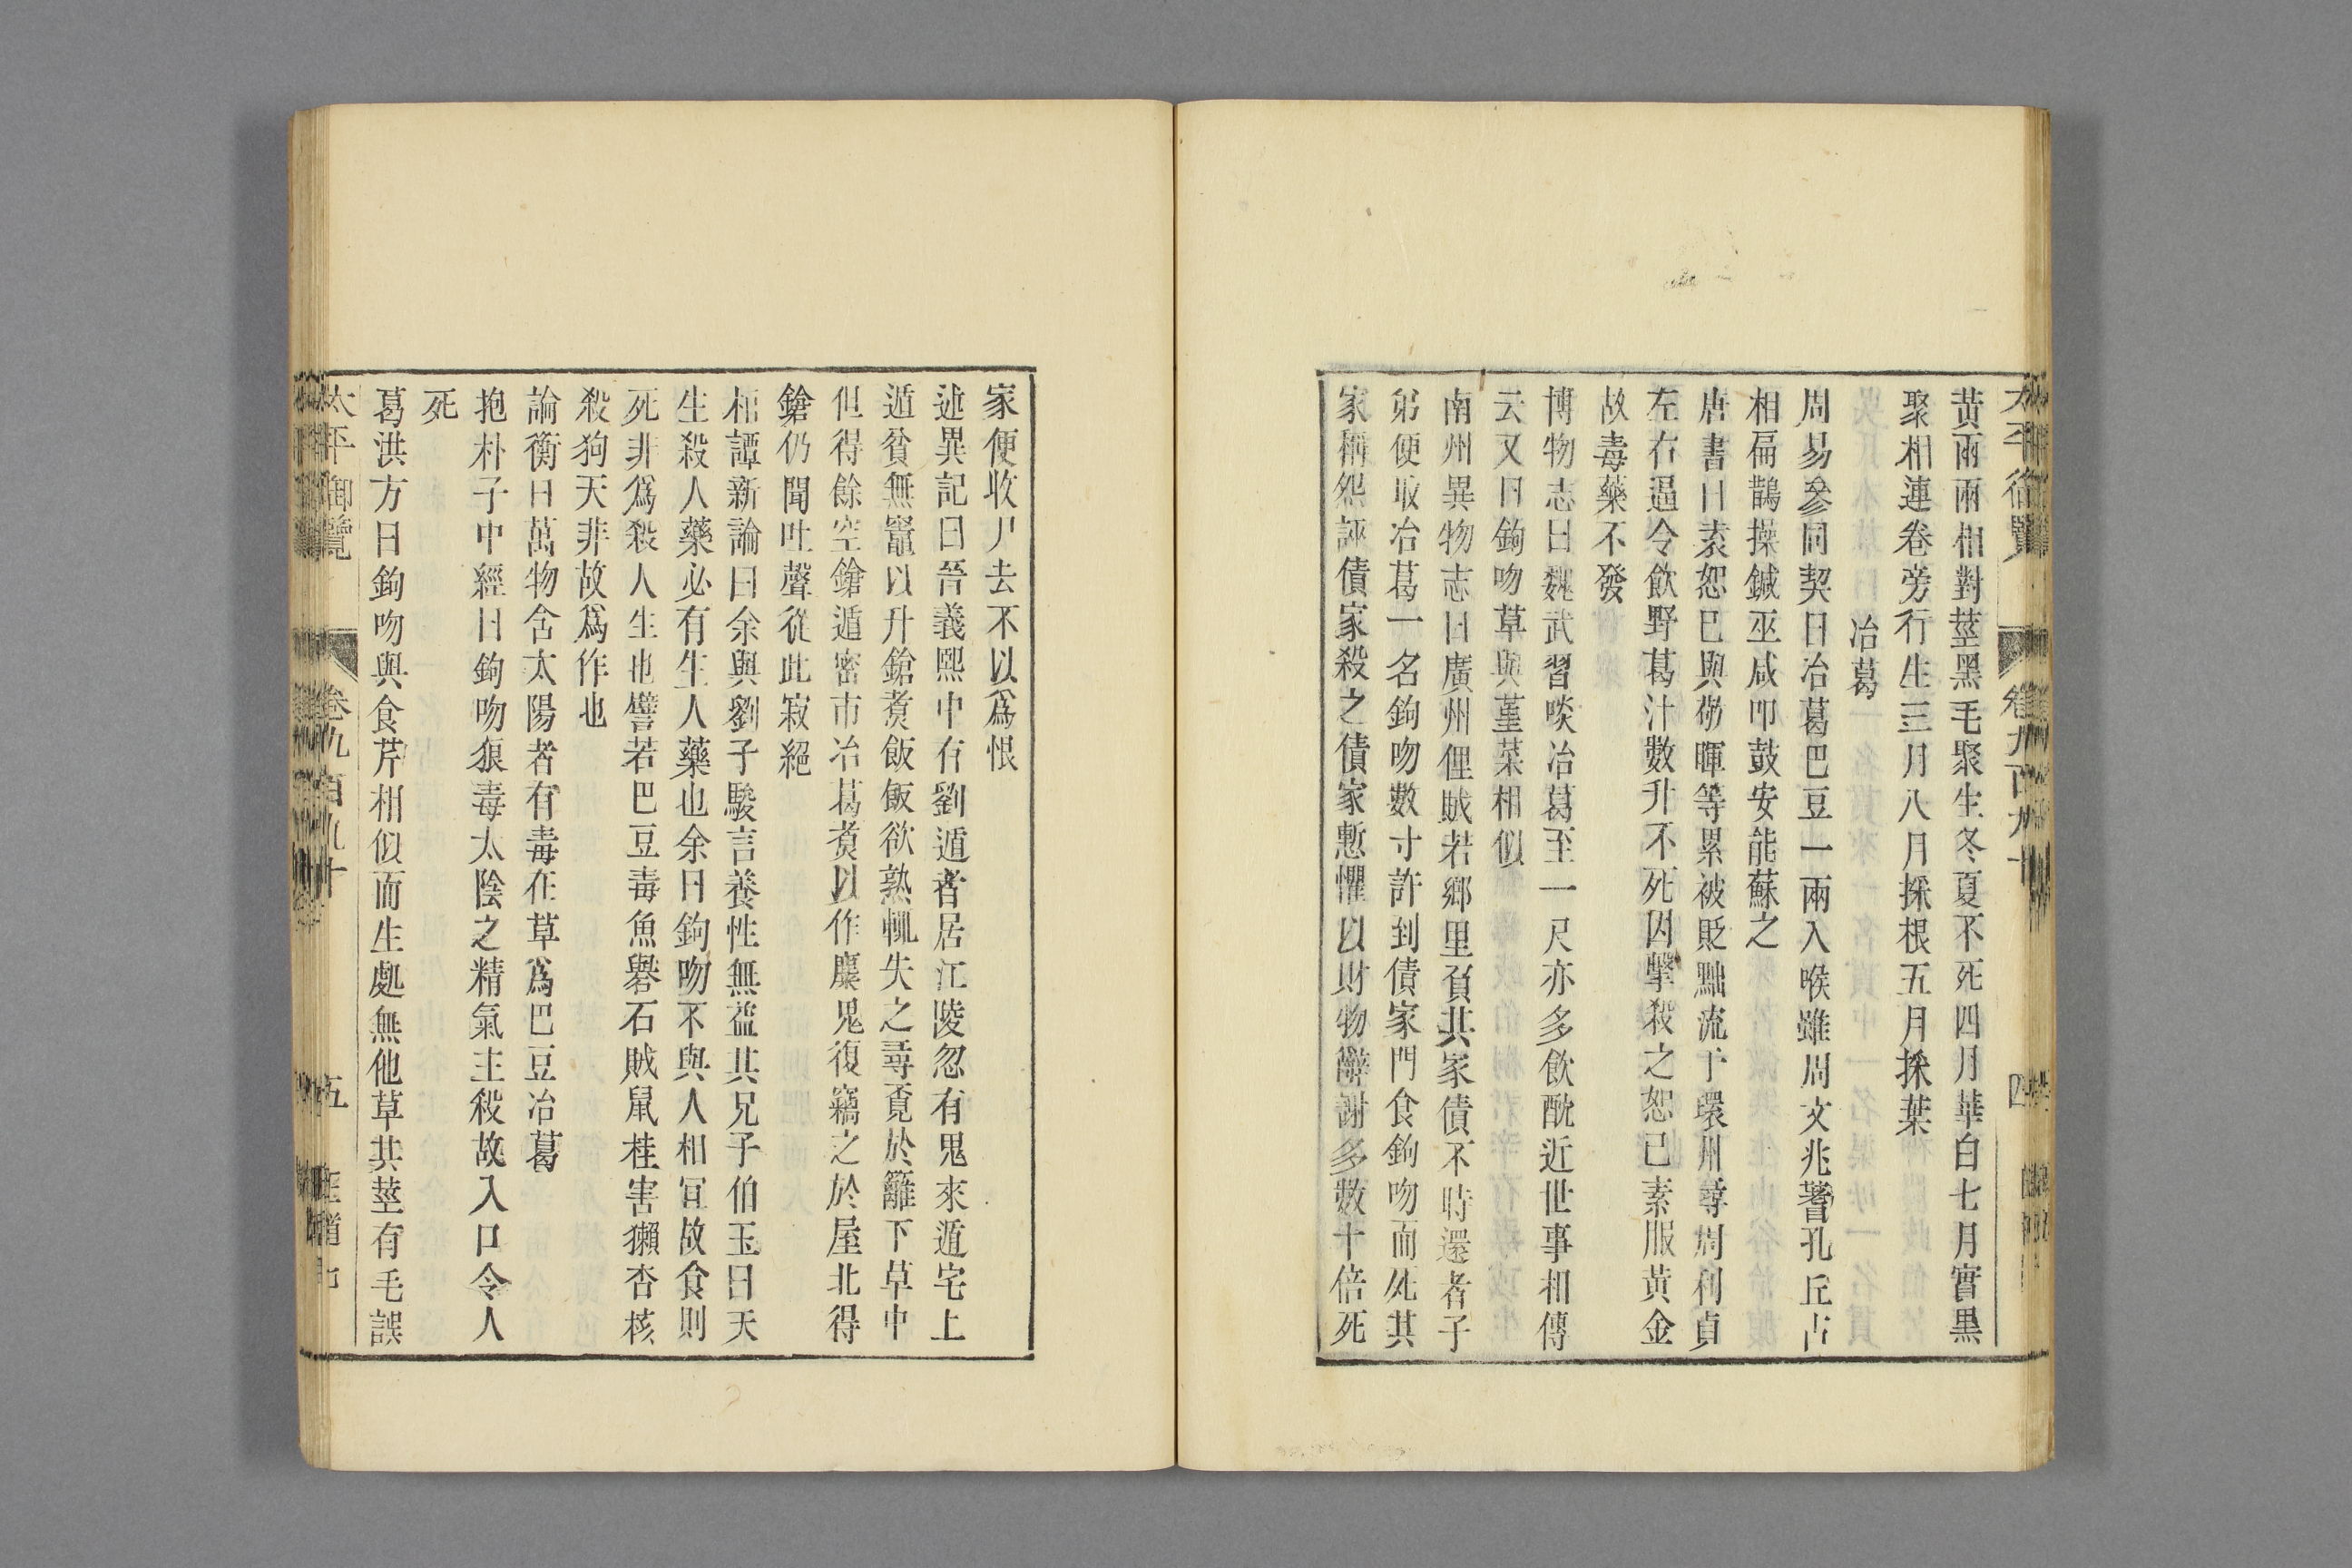 黃兩兩相對莖黑毛聚生冬夏不死四月華白七月實黑
聚相連卷旁行生三月八月採根五月採葉
冶葛
周易參同契曰冶葛巴豆一兩入喉雖周文兆蓍孔丘占
相扁鵲操鍼巫咸叩鼓安能蘇之
唐書曰袁恕已與楊暉等累被貶黜流于環州尋周利貞
左右逼令飲野葛汁數升不死因擊殺之恕已素服黃金
故毒藥不發
博物志曰魏武習啖冶葛至一尺亦多飲酖近世事相傳
云又曰鉤吻草與堇菜相似
南州異物志曰廣州俚賊若鄉里負其家債不時還者子
弟便取冶葛一名鉤吻數寸許到債家門食鉤吻而死其
家稱怨誣債家殺之債家慙懼以財物辭謝多數十倍死
家便收尸去不以爲恨
述異記曰晉義熙中有劉遁者居江陵忽有鬼來遁宅上
遁貧無竈以升鎗煑飯飯欲熟輒失之尋覔於籬下草中
但得餘空鎗遁密市冶葛煑以作麋鬼復竊之於屋北得
鎗仍聞吐聲從此寂絕
桓譚新論曰余與劉子駿言養性無益其兄子伯玉曰天
生殺人藥必有生人藥也余曰鉤吻不與人相宜故食則
死非爲殺人生也譬若巴豆毒魚礜石賊鼠桂害獺杏核
殺狗天非故爲作也
論衡曰萬物含太陽者有毒在草爲巴豆冶葛
抱朴子中經曰鉤吻狼毒太陰之精氣主殺故入口令人
死
葛洪方曰鉤吻與食芹相似而生處無他草其莖有毛誤
太平御覽 卷九百九十 五